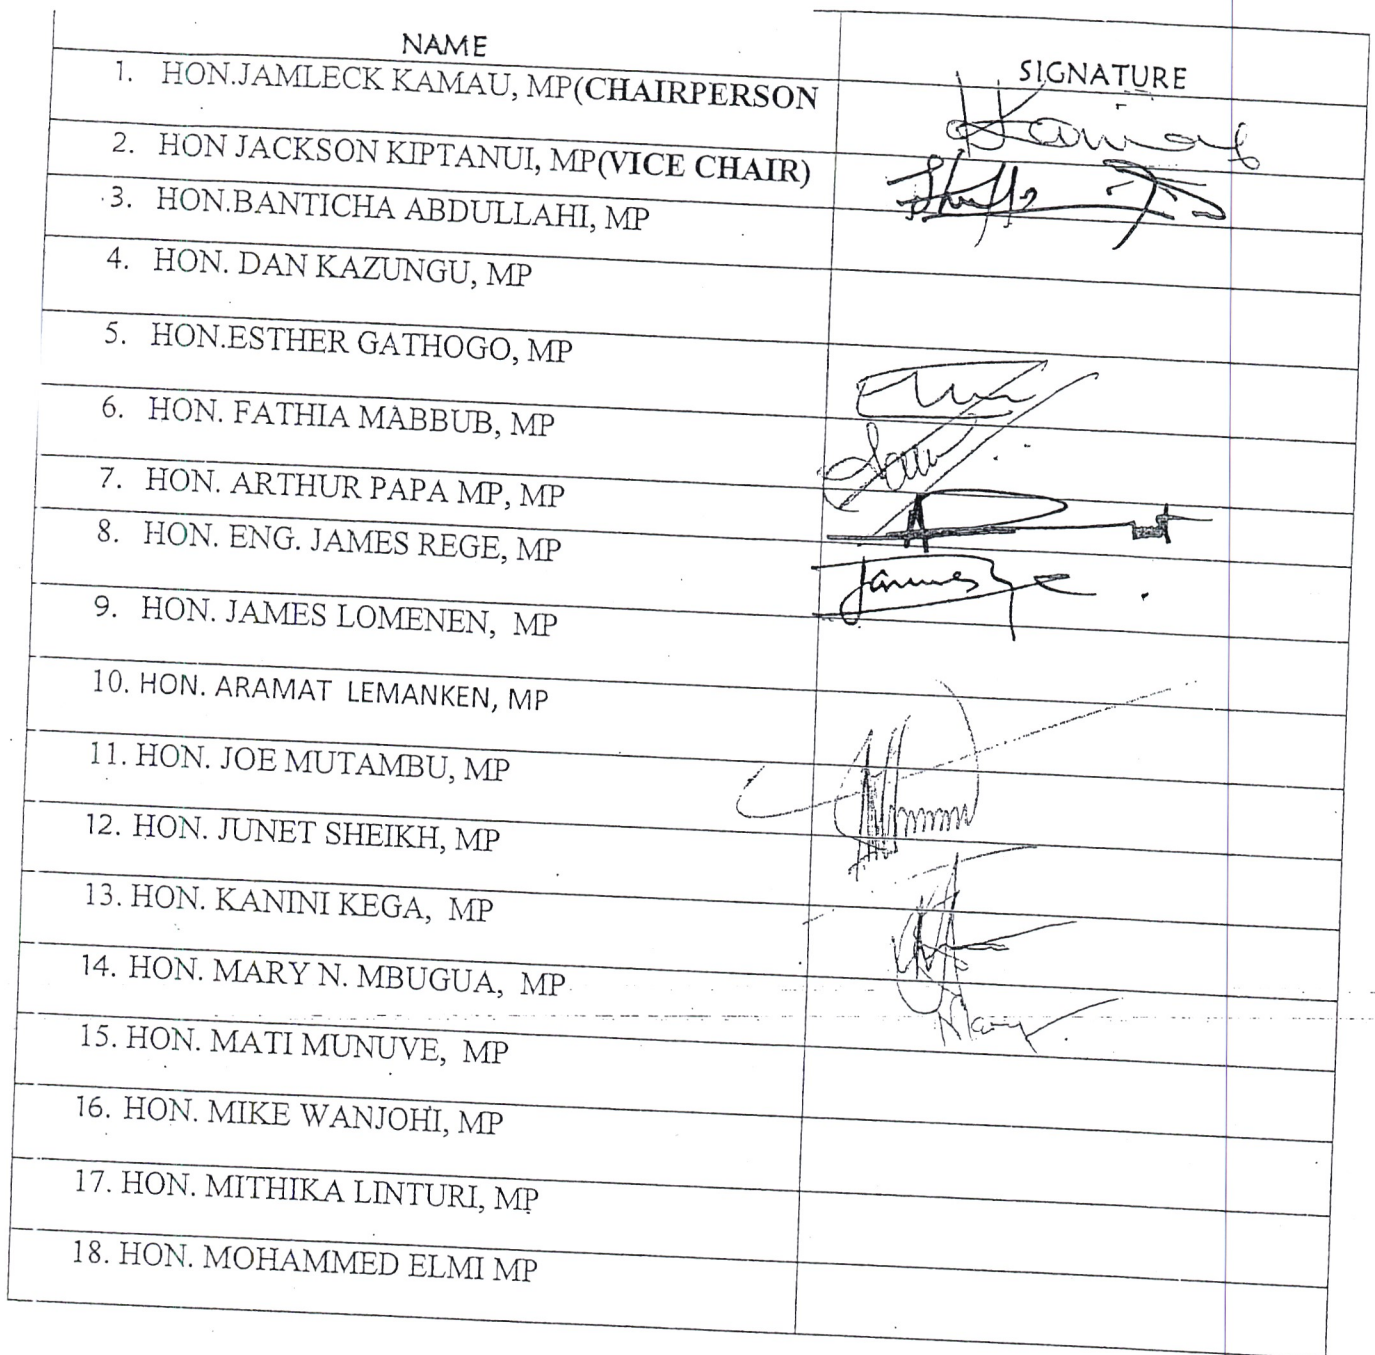 NAME
SIGNATURE
1. HON.JAMLECK KAMAU, MP(CHAIRPERSON
2. HON JACKSON KIPTANUI, MP(VICE CHAIR)
3. HON.BANTICHA ABDULLAHI, MP
4. HON. DAN KAZUNGU, MP
5. HON.ESTHER GATHOGO, MP
6. HON. FATHIA MABBUB, MP
7. HON. ARTHUR PAPA MP, MP
8. HON. ENG. JAMES REGE, MP
James
9. HON. JAMES LOMENEN, MP
10. HON. ARAMAT LEMANKEN, MP
11. HON. JOE MUTAMBU, MP
12. HON. JUNET SHEIKH, MP
13. HON. KANINI KEGA, MP
14. HON. MARY N. MBUGUA, MP
Mary
15. HON. MATI MUNUVE, MP
16. HON. MIKE WANJOHI, MP
17. HON. MITHIKA LINTURI, MP
18. HON. MOHAMMED ELMI MP